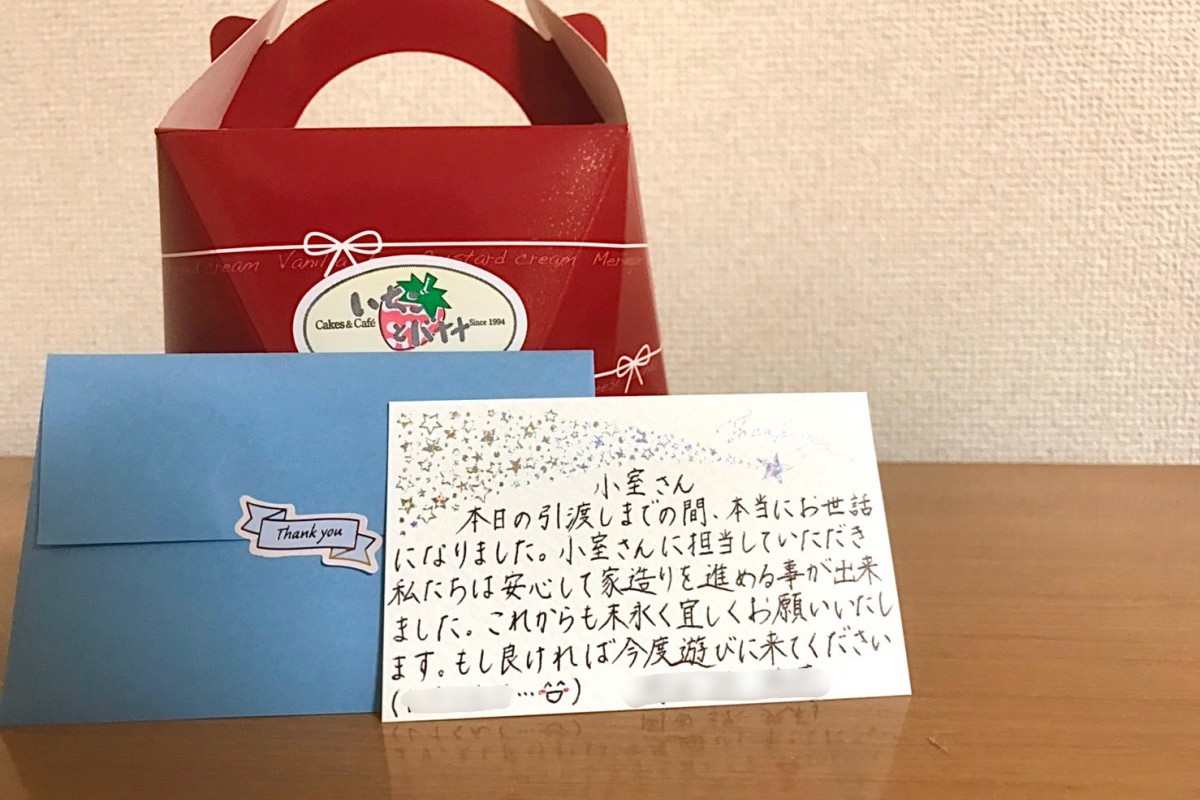 cream Vanilla Custard cream
いちご
Cakes & Café
Since 1994
とバナナ
Thank you
Thank you
小室さん
本日の引渡しまでの間、本当にお世話
になりました。小室さんに担当していただき
私たちは安心して家造りを進める事が出来
ました。これからも末永く宜しくお願いいたし
ます。もし良ければ今度遊びに来てください